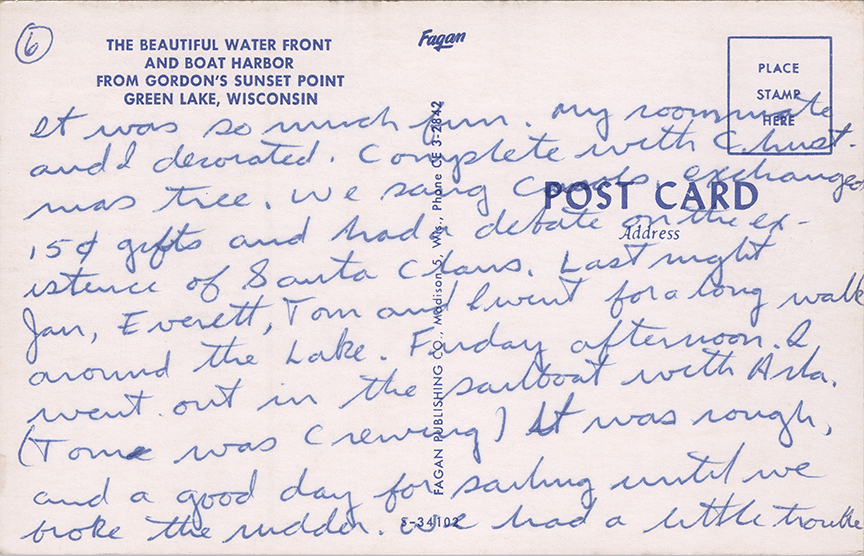 6
THE BEAUTIFUL WATER FRONT
AND BOAT HARBOR
FROM GORDON'S SUNSET POINT
GREEN LAKE, WISCONSIN
Fagan
PLACE
STAMP
HERE
POST CARD
Address
FAGAN PUBLISHING CO., Madison 5, Wis., Phone CE 3-2842
S-34102
It was so much fun. My roommate
and I decorated. Complete with Christ-
mas tree. We sang Carols exchanged
15¢ gifts and had a debate on the ex-
istence of Santa Claus. Last night
Jan, Everett, Tom and I went for a long walk
around the Lake. afternoon. I
went out in the sailboat with Arla.
(Tom was Crewing) It was rough,
and a good day for sailing until we
broke the rudder. We had a little trouble